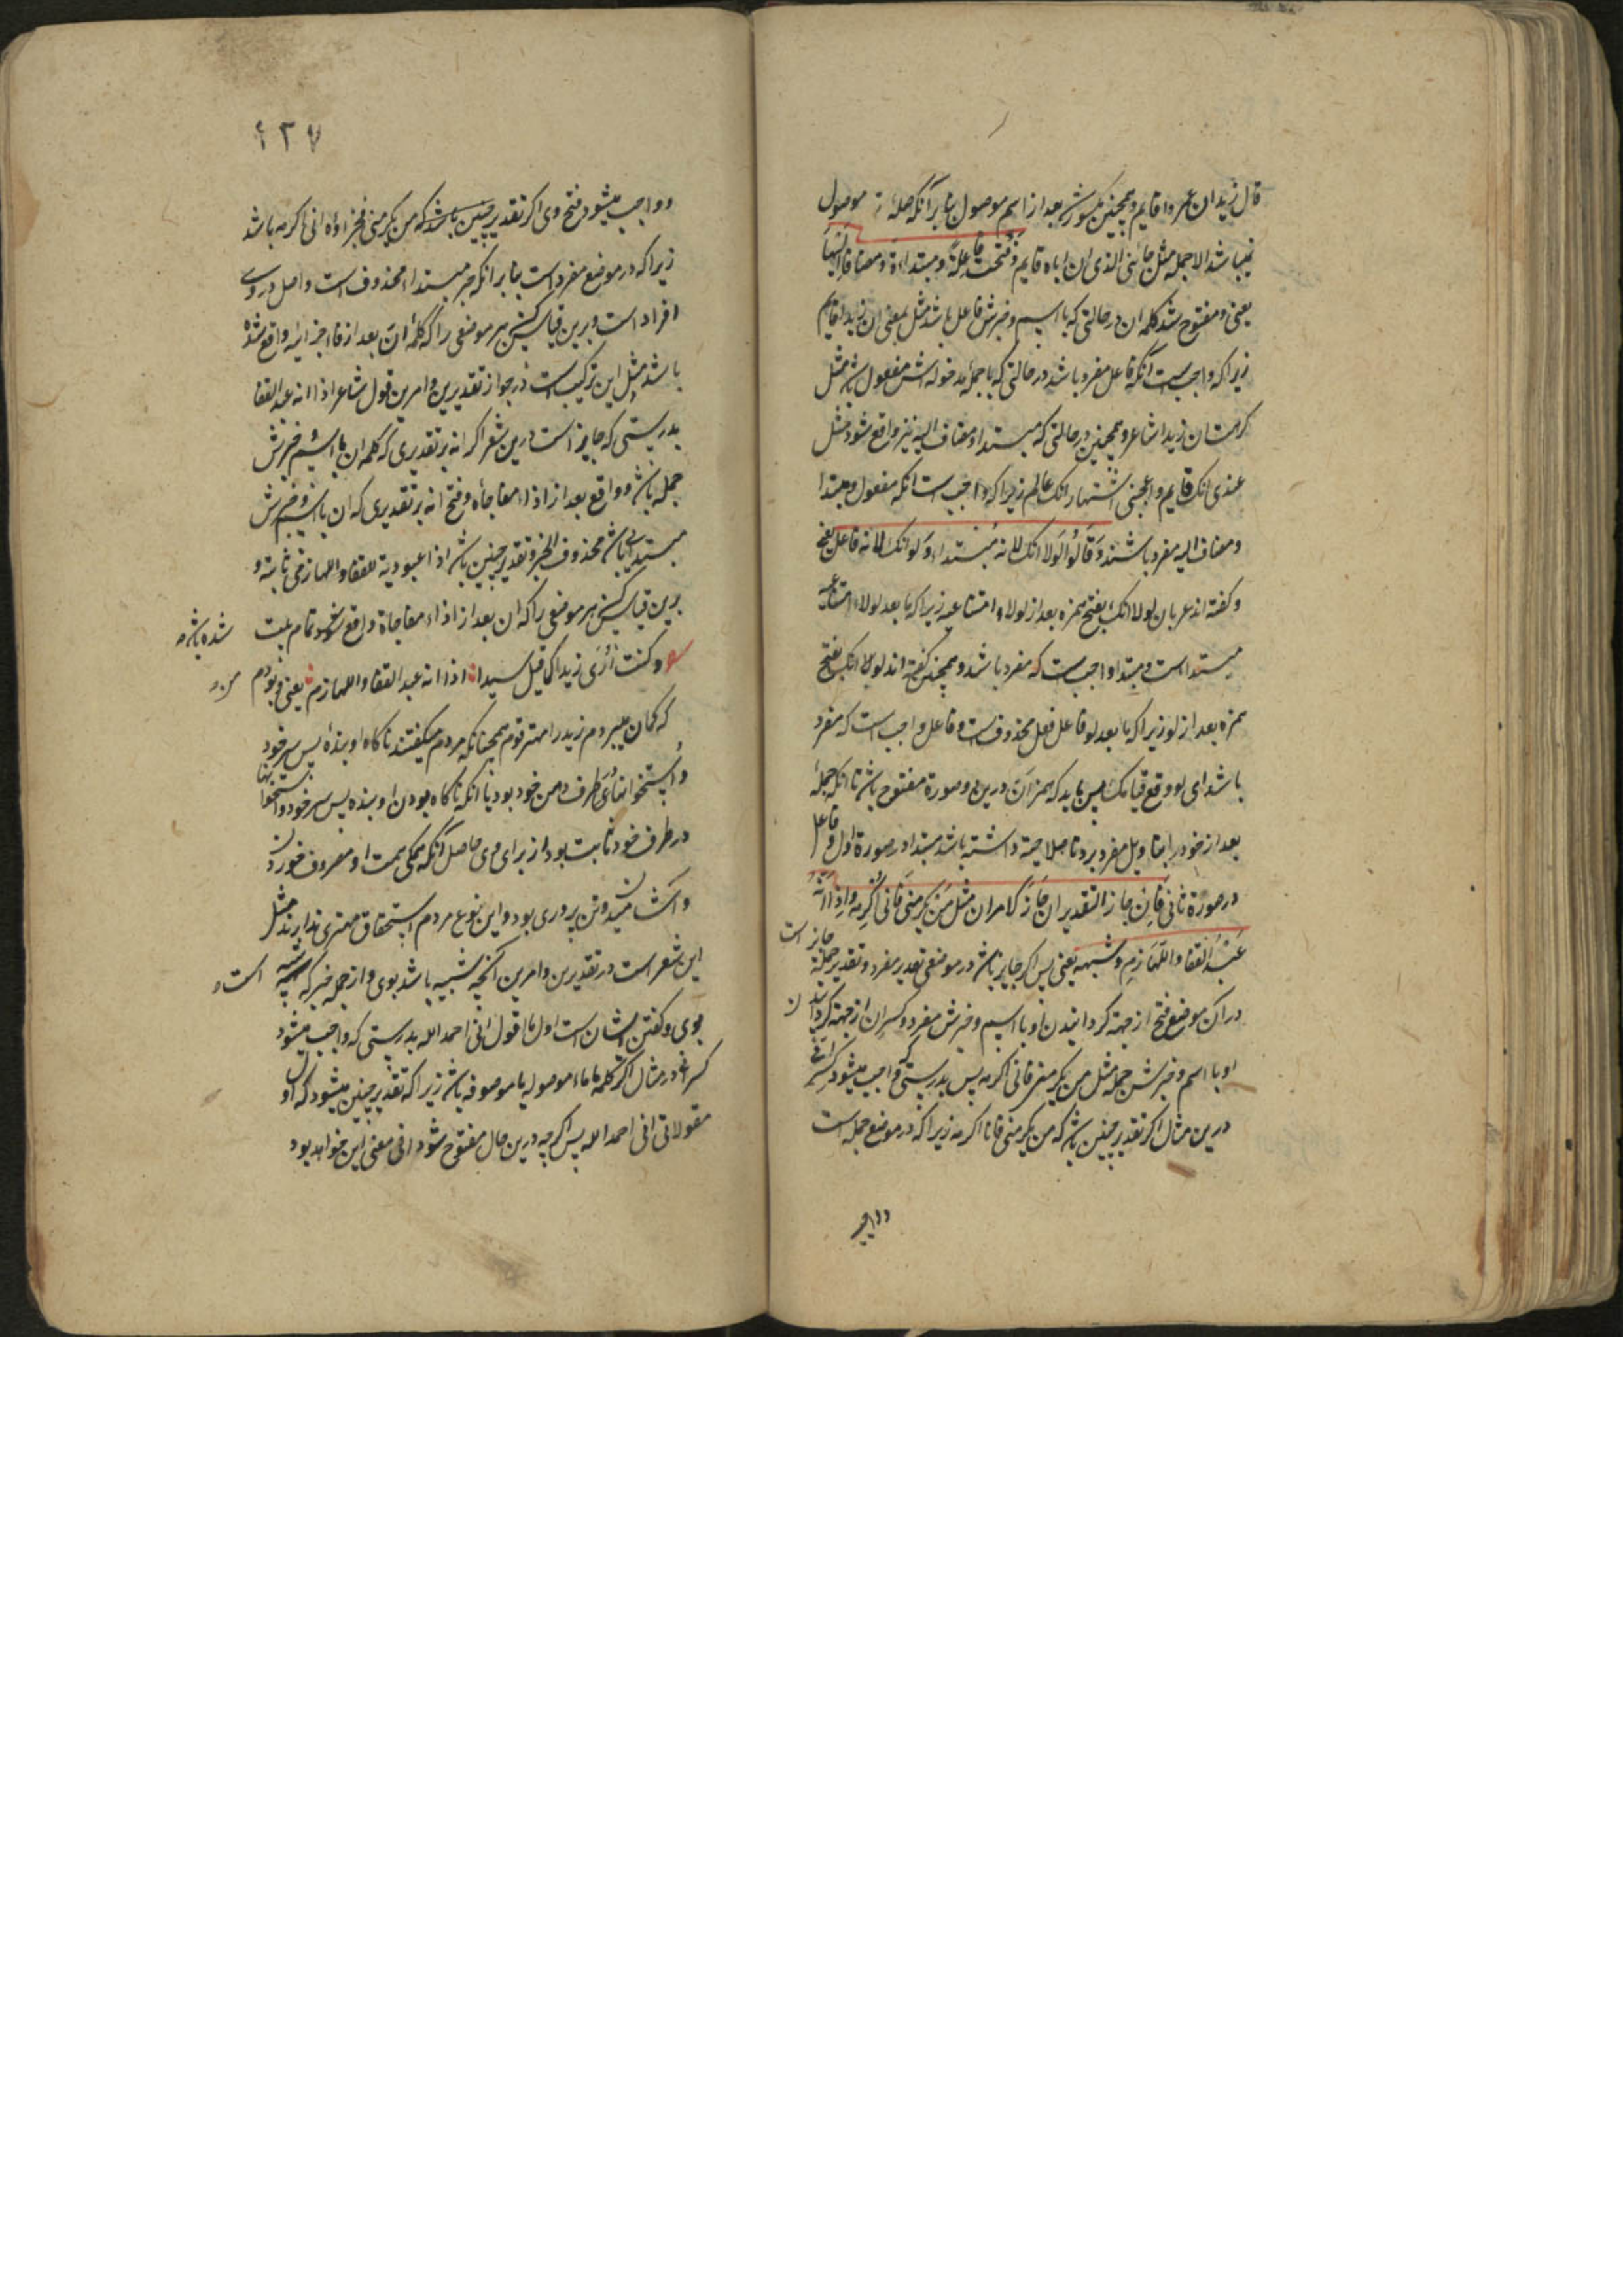 قال زید ان عمروا قایم وهمچنین مکسور شد بعد از اسم موصول بنابر آنکه صلهٔ موصول
نمیباشد الا جمله مثل جائنی الذی ان اباه قایم وفتحت فاعلة ومبتداءة ومضافا الیها
یعنی ومفتوح شد کلمه ان در حالتی که با اسم وخبرش فاعل باشد مثل بلغنی ان زیدا قایم
زیرا که واجب است آنکه فاعل مفرد باشد در حالتی که با جمله مدخوله اش مفعول باشد مثل
کرهت ان زیدا شاعر وهمچنین در حالتی که مبتدا ومضاف الیه نیز واقع شود مثل
عندی انک قایم واعجبنی اشتهار انک عالم زیرا که واجب است آنکه مفعول ومبتدا
ومضاف الیه مفرد باشند وقالوا لولا انک لانه مبتداء ولو انک لانه فاعل یعنی
وکفته اند عربان لولا انک بفتح همزه بعد از لولاء امتناعیه زیرا که ما بعد لولاء امتناعیه
مبتدا است ومبتدا واجب است که مفرد باشد وهمچنین کفته اند لو انک بفتح
همزه بعد از لو زیرا که ما بعد لو فاعل فعل محذوف است وفاعل واجب است که مفرد
باشد ای لو وقع قیامک پس باید که همزه ان درین دو صورة مفتوح باشد تا انکه جملهٔ
بعد از خود را بتاویل مفرد برد تا صلاحیة داشته باشد مبتدا در صورة اول وفاعل
در صورة ثانی فان جاز التقدیران جاز الامران مثل من یکرمنی فانی اکرمه واذا انه
عبد القفا واللهازم وشبهه یعنی پس اکر جایز باشد در موضعی تقدیر مفرد وتقدیر جمله جایز است
در آن موضع فتح ان از جهة کردانیدن او با اسم وخبرش مفرد وکسر ان از جهة کردانیدن
او با اسم وخبرش جمله مثل من یکرمنی فانی اکرمه پس بدرستی که واجب میشود کسر انی
درین مثال اکر تقدیر چنین باشد که من یکرمنی فانا اکرمه زیرا که در موضع جمله است
وواجب
۲۳۷
وواجب میشود فتح وی اکر تقدیر چنین باشد که من یکرمنی فجزاؤه انی اکرمه باشد
زیرا که در موضع مفرد است بنابر انکه خبر مبتداء محذوف است واصل در وی
افراد است وبرین قیاس کن هر موضعی را که کلمهٔ ان بعد از فاء جزائیه واقع شده
باشد ومثل این ترکیب است در جواز تقدیرین وامرین قول شاعر اذا انه عبد القفا
بدرستی که جایز است درین شعر اکر انه بر تقدیری که کلمه ان با اسم وخبرش
جمله باشد وواقع بعد از اذاء مفاجأه وفتح انه بر تقدیری که ان با اسم وخبرش
مبتدای باشد محذوف الخبر وتقدیر چنین باشد اذا عبودیة للقفا واللهازم ثابتة و
برین قیاس کن هر موضعی را که ان بعد از اذاء مفاجاة واقع شده باشد وتمام بیت
وکنت اری زیدا کما قیل سیدا اذا انه عبد القفا واللهازم یعنی وبودم من
که کمان میبردم زید را مهتر قوم همچنانکه مردم میکفتند ناکاه او بندهٔ پس سر خود
واستخوانهای طرف دهن خود بود یا انکه ناکاه بودن او بنده پس سر خود واستخوانها
در طرف خود ثابت بود از برای وی حاصل آنکه همکی همت او مصروف خوردن
واشامیدن وتن پروری بود واین نوع مردم استحقاق مهتری ندارند مثل
این شعر است در تقدیرین وامرین آنچه شبیه باشد بوی واز جمله خبر که شبیه است
بوی وکفتن ایشان است اول ما اقول انی احمد الله بدرستی که واجب میشود
کسر انی در مثال اکر کلمه ما ماء موصول یا موصوفه باشد زیرا که تقدیر چنین میشود که اول
مقولاتی انی احمد الله پس اکر چه درین حال مفتوح شود انی معنی این خواهد بود